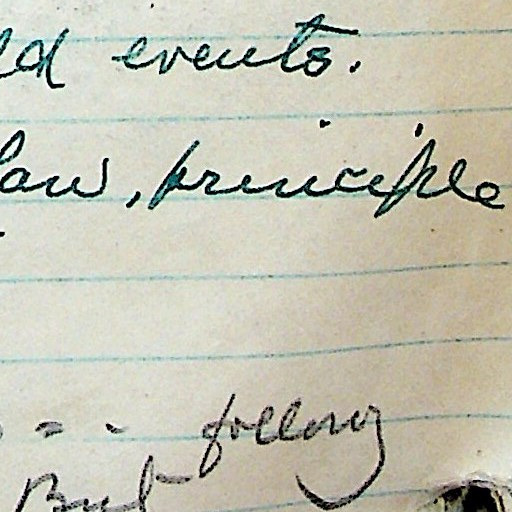 ld events.
law, principle
= - follony
But